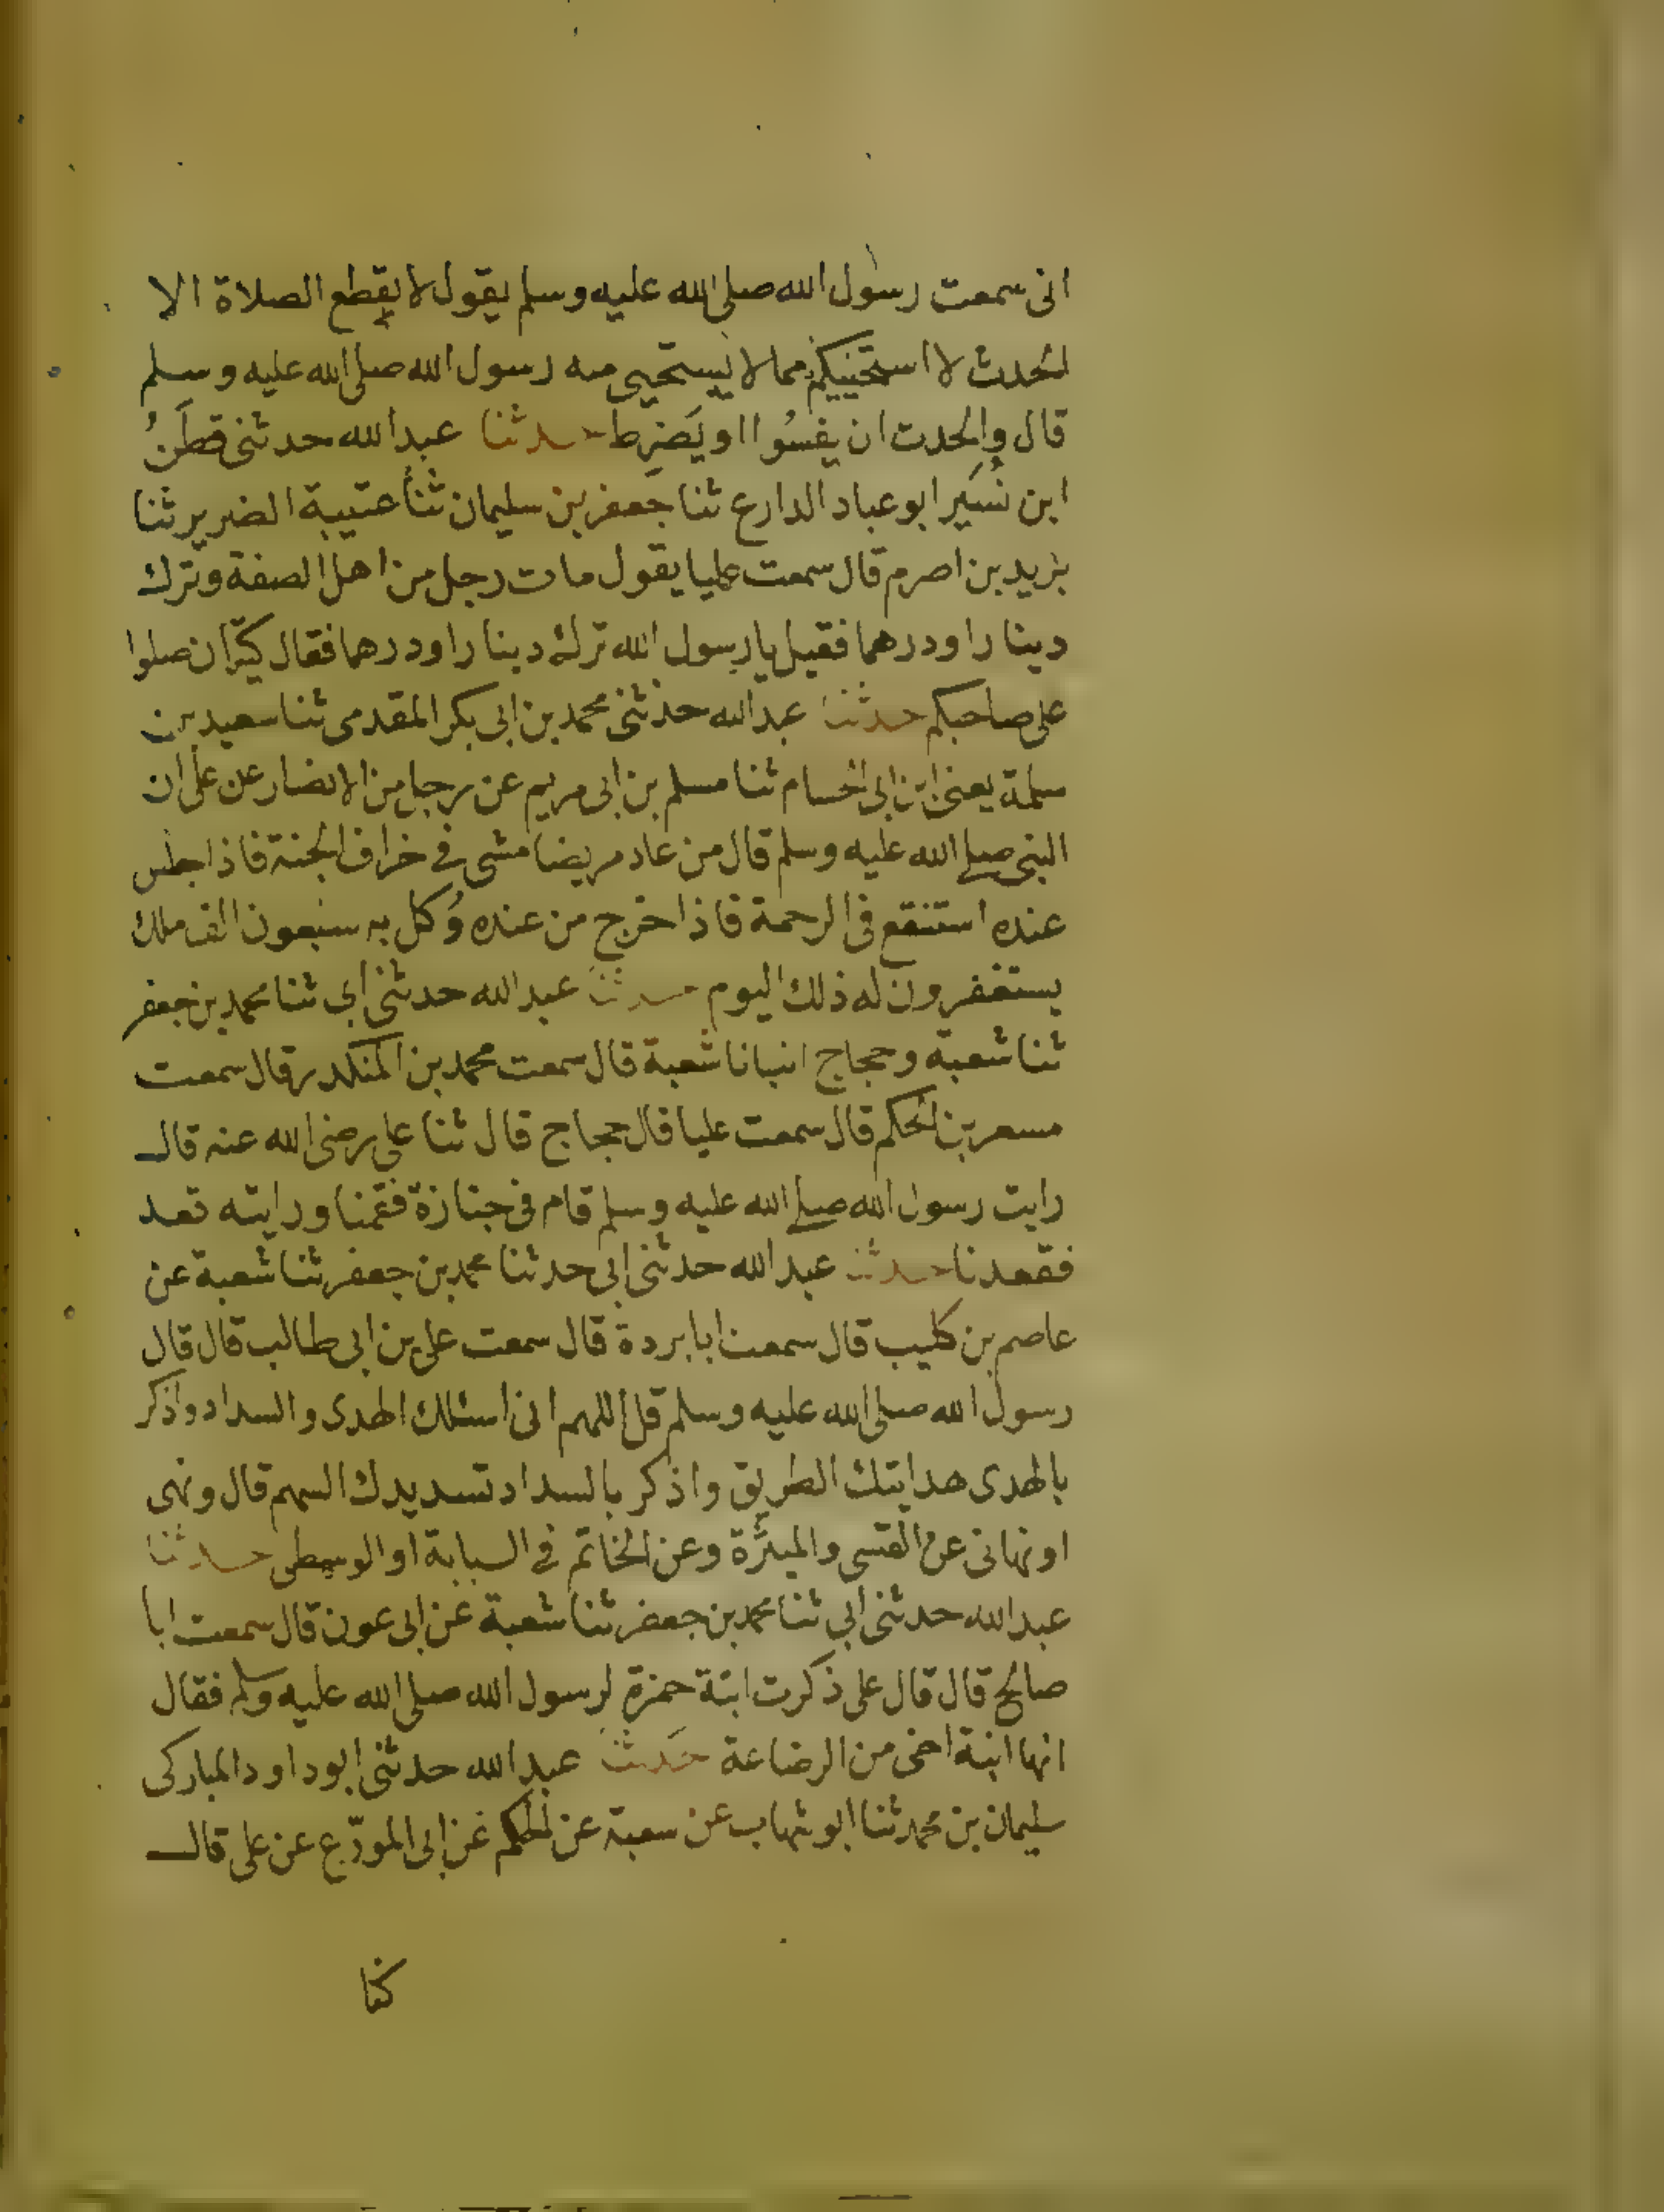 انى سمعت رسول الله صلى الله عليه وسلم يقول لا يقطع الصلاة الا
الحدث لا استحييكم مما لا يستحيى منه رسول الله صلى الله عليه وسلم
قال والحدث ان يفسُوا او يَضرِط حدثنا عبدالله حدثنى قطَنُ
ابن نُسَير ابو عباد الدارع ثنا جعفر بن سليمان ثنا عتيبة الضرير ثنا
بزيد بن اصرم قال سمعت عليا يقول مات رجل من اهل الصفة وترك
دينارا ودرهما فقيل يا رسول الله ترك دينارا ودرهما فقال كيّتان صلوا
على صاحبكم حدثنا عبدالله حدثنى محمد بن ابى بكر المقدمى ثنا سعيد بن
سلمة يعنى ابن ابى الحسام ثنا مسلم بن ابى مريم عن رجل من الانصار عن على ان
النبى صلى الله عليه وسلم قال من عاد مريضا مشى فى خراف الجنة فاذا جلس
عنده استنقع فى الرحمة فاذا خرج من عنده وُكل به سبعون الف ملك
يستغفرون له ذلك اليوم حدثنا عبدالله حدثنى أبى ثنا محمد بن جعفر
ثنا شعبة وحجاج انبانا شعبة قال سمعت محمد بن المنكدر قال سمعت
مسعر بن الحكم قال سمعت عليا قال حجاج قال ثنا على رضى الله عنه قال
رايت رسول الله صلى الله عليه وسلم قام فى جنازة فقمنا ورايته قعد
فقعدنا حدثنا عبدالله حدثنى ابى حدثنا محمد بن جعفر ثنا شعبة عن
عاصم بن كليب قال سمعت ابا بردة قال سمعت على بن ابى طالب قال قال
رسول الله صلى الله عليه وسلم قل اللهم انى اسئلك الهدى والسداد واذكر
بالهدى هدايتك الطريق واذكر بالسداد تسديدك السهم قال ونهى
او نهانى عن القسى والميثرة وعن الخاتم فى السبابة او الوسطى حدثنا
عبدالله حدثنى ابى ثنا محمد بن جعفر ثنا شعبة عن ابى عون قال سمعت ابا
صالح قال قال على ذكرت ابنة حمزة لرسول الله صلى الله عليه وسلم فقال
انها ابنة اخى من الرضاعة حدثنا عبدالله حدثنى ابو داود المباركى
سليمان بن محمد ثنا ابو شهاب عن سعبة عن الحكم عن ابى المورّع عن على قال
كنا